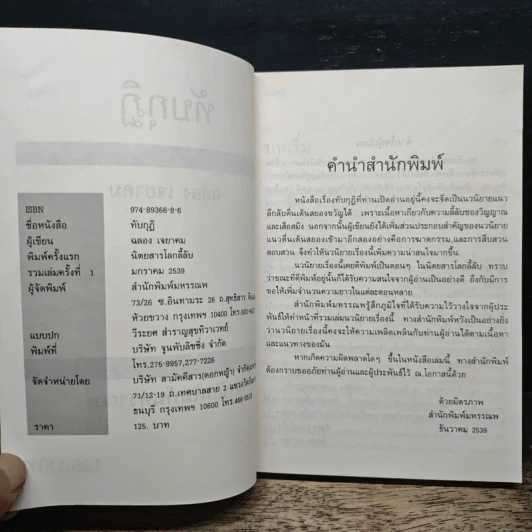 ISBN 974-89366-8-6
ชื่อหนังสือ ทับกุฎี
ผู้เขียน ฉลอง เจยาคม
พิมพ์ครั้งแรก นิตยสารโลกลี้ลับ
รวมเล่มครั้งที่ 1 มกราคม 2539
ผู้จัดพิมพ์ สำนักพิมพ์มหรรณพ
73/26 ซ.อินทามระ 26 ถ.สุทธิสาร ดินแดง
ห้วยขวาง กรุงเทพฯ 10400
แบบปก วีระยศ สำราญสุขทิวาเวทย์
พิมพ์ที่ บริษัท จูนพับลิชชิ่ง จำกัด
โทร.275-9957,277-7226
จัดจำหน่ายโดย บริษัท สามัคคีสาร(ดอกหญ้า) จำกัด
71/12-19 ถ.เทศบาลสาย 2 แขวงวัดกัลยาณ์
ธนบุรี กรุงเทพฯ 10600 โทร.466-
ราคา 125. บาท
คำนำสำนักพิมพ์
หนังสือเรื่องทับกุฎีที่ท่านเปิดอ่านอยู่นี้คงจะจัดเป็นนวนิยายแนว
ลึกลับตื่นเต้นสยองขวัญได้ เพราะเนื้อหาเกี่ยวกับความลี้ลับของวิญญาณ
และเสือสมิง นอกจากนั้นผู้เขียนยังได้เพิ่มส่วนประกอบสำคัญของนวนิยาย
แนวตื่นเต้นสยองเข้ามาอีกสองอย่างคือการฆาตกรรม และการสืบสวน
สอบสวน จึงทำให้นวนิยายเรื่องนี้เพิ่มความน่าสนใจมากขึ้น
นวนิยายเรื่องนี้เคยตีพิมพ์เป็นตอนๆ ในนิตยสารโลกลี้ลับ ทราบ
ว่าขณะที่ตีพิมพ์อยู่นั้นก็ได้รับความสนใจจากผู้อ่านเป็นอย่างดี ถึงกับมีการ
ขอให้เพิ่มจำนวนความยาวในแต่ละตอนหลาย
สำนักพิมพ์มหรรณพรู้สึกภูมิใจที่ได้รับความไว้วางใจจากผู้ประ
พันธ์ให้ทำหน้าที่รวมเล่มนวนิยายเรื่องนี้ ทางสำนักพิมพ์หวังเป็นอย่างยิ่ง
ว่านวนิยายเรื่องนี้คงจะให้ความเพลิดเพลินกับท่านผู้อ่านได้ตามเนื้อหา
และแนวทางของมัน
หากเกิดความผิดพลาดใดๆ ขึ้นในหนังสือเล่มนี้ ทางสำนักพิมพ์
ต้องกราบขออภัยท่านผู้อ่านและผู้ประพันธ์ไว้ ณ.โอกาสนี้ด้วย
ด้วยมิตรภาพ
สำนักพิมพ์มหรรณพ
ธันวาคม 2539